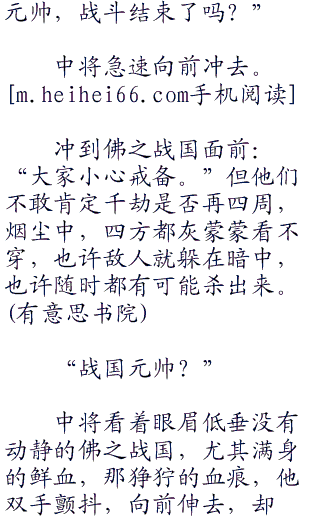 元帅，战斗结束了吗？”
中将急速向前冲去。
[m.heihei66.com手机阅读]
冲到佛之战国面前：
“大家小心戒备。”但他们
不敢肯定千劫是否再四周，
烟尘中，四方都灰蒙蒙看不
穿，也许敌人就躲在暗中，
也许随时都有可能杀出来。
(有意思书院)
“战国元帅？”
中将看着眼眉低垂没有
动静的佛之战国，尤其满身
的鲜血，那狰狞的血痕，他
双手颤抖，向前伸去，却